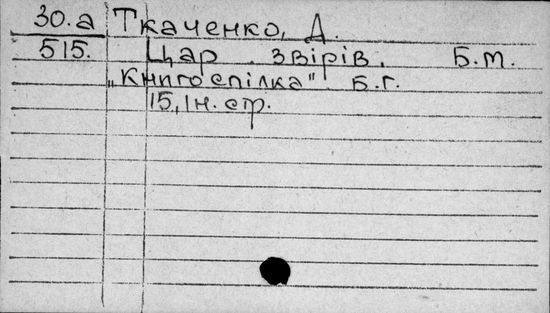 30.а Ткаченко, А.
515. Цар звірів. Б.м.
„Книгоспілка". Б.г.
15, Ін. стр.